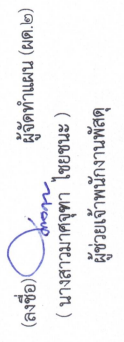 (ลงชื่อ) ผู้จัดทำแผน (ผด.๒)
( นางสาวมาศจุฑา ไชยชนะ )
ผู้ช่วยเจ้าพนักงานพัสดุ